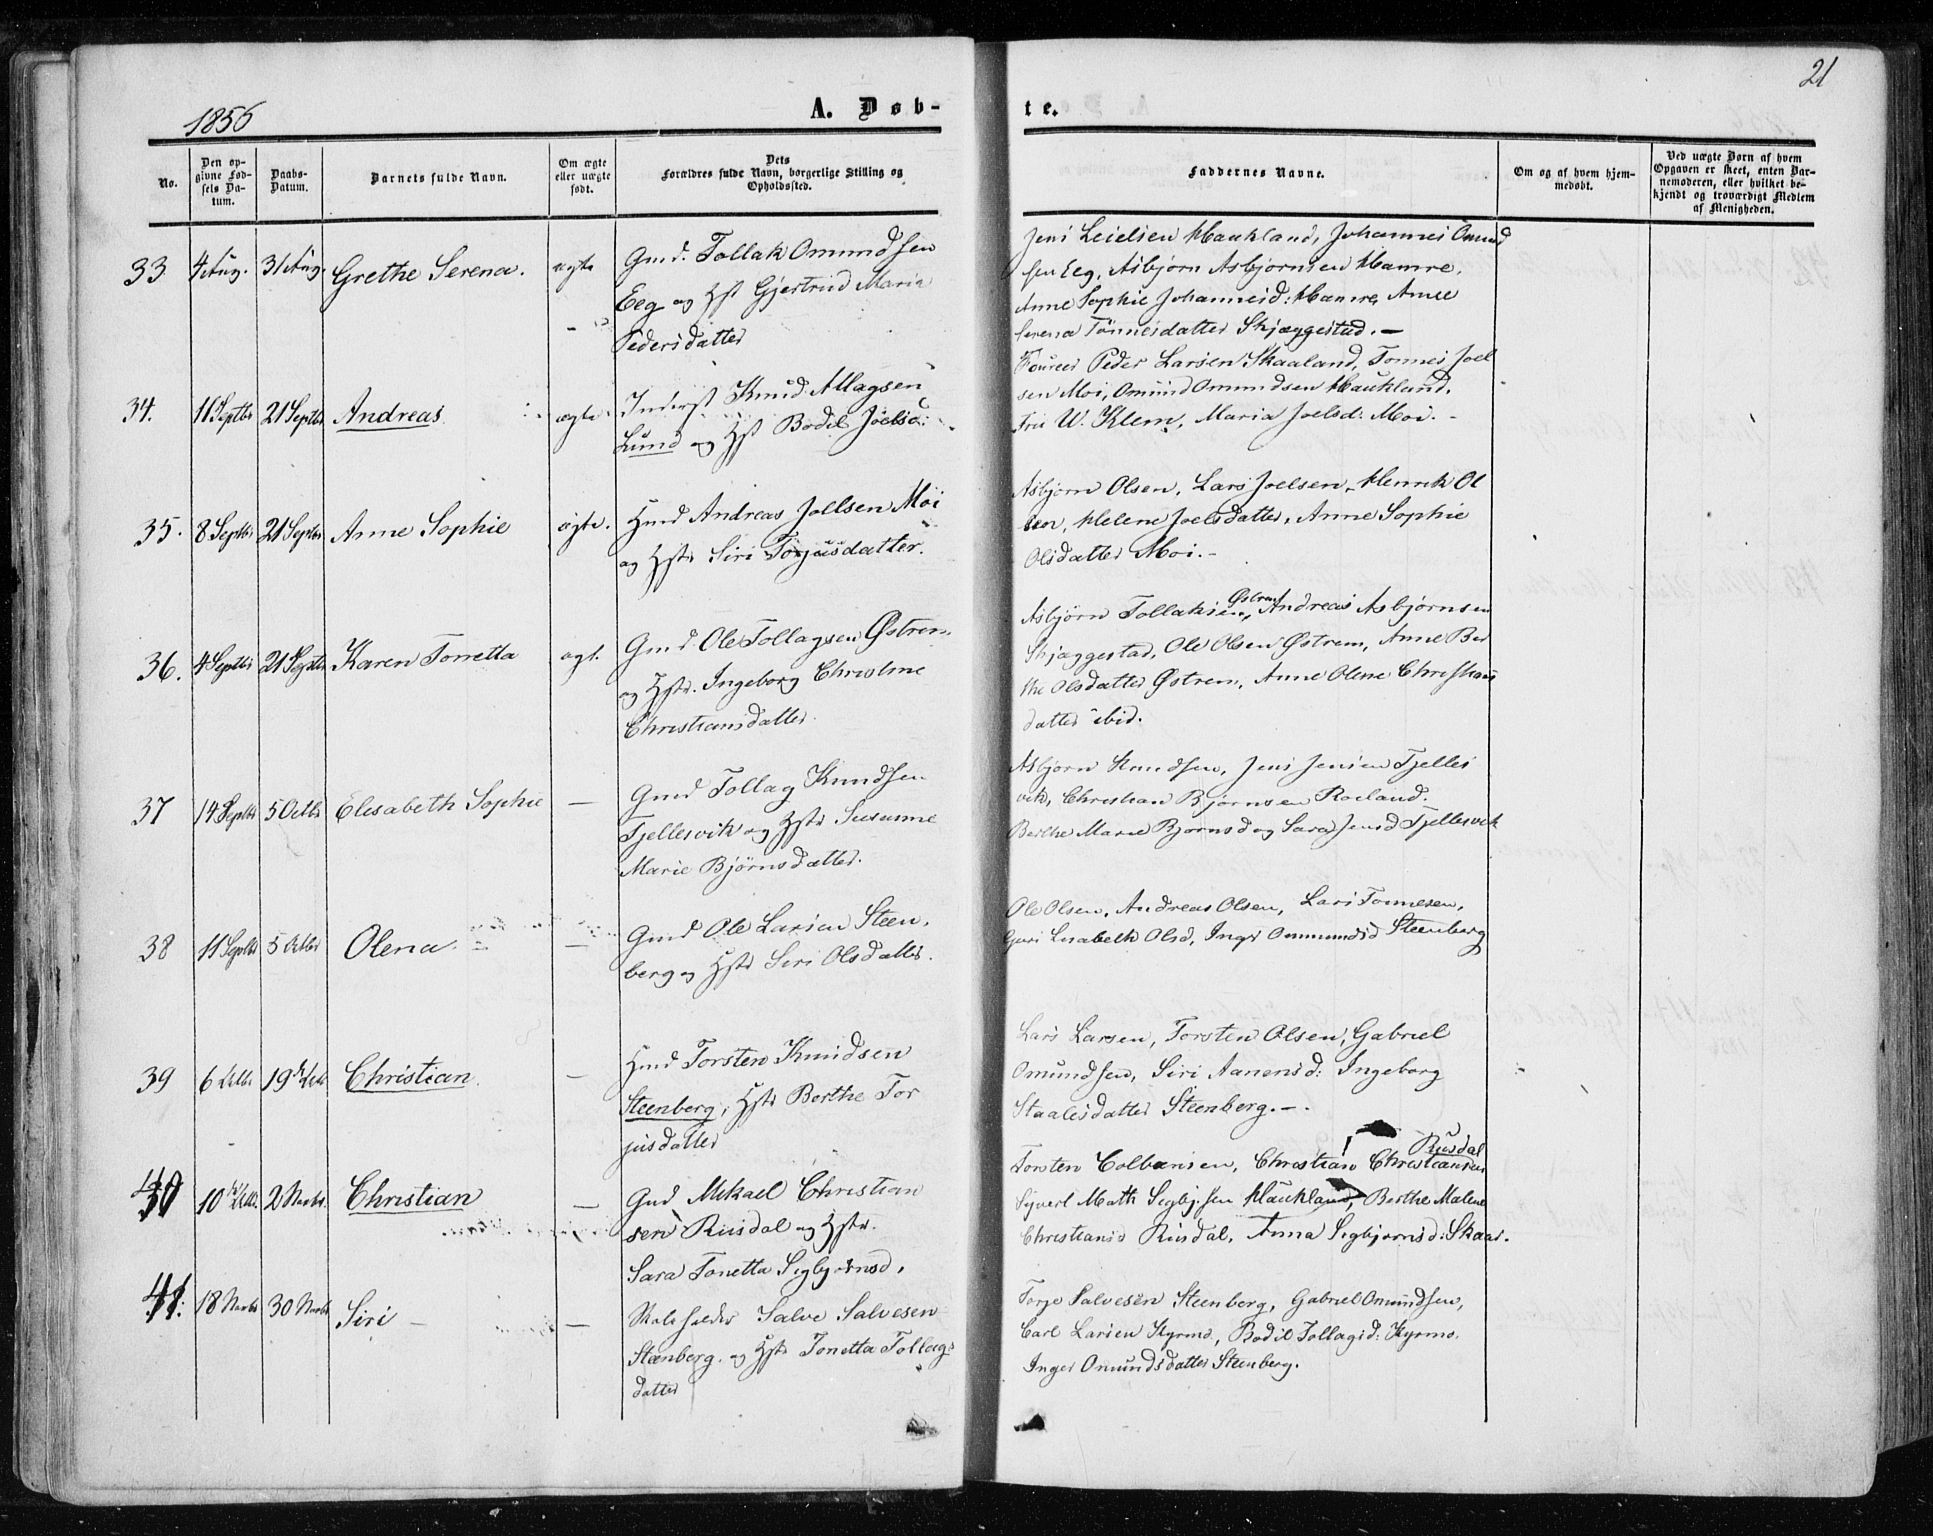 1856
A. Døb-
te.
21
No.
Den op-
givne Fød-
sels Da-
tum.
Daabs-
Datum.
Barnets fulde Navn.
Om ægte
eller uægte
født.
Dets
Forældres fulde Navn, borgerlige Stilling og
Opholdssted.
Faddernes Navne.
Om og af hvem hjem-
medøbt.
Ved uægte Børn af hvem
Opgaven er skeet, enten Bar-
nemoderen, eller hvilket be-
kjendt og troværdigt Medlem
af Menigheden.
33 4 Aug. 31 Aug. Grethe Serena. ægte
Gmd. Tollak Omundsen
Eeg og Hst Gjertrud Maria
Pedersdatter
Jens Haukland, Johannes Omund
sen Eeg, Asbjørn Asbjørnsen Hamre.
Anne Sophie Johannesd: Hamre, Anne
Serena Tönnesdatter Skjæggestad. —
34. 11 Septbr 21 Septbr Andreas ægte.
Inderst Knud Allagsen
Lund og Hst Bodil Joelsd:
Peder Larsen Skaaland, Tonnes Joel
sen Moi, Omund Omundsen Haukland,
W. Klem, Maria Joelsd: Moi. -
35. 8 Septbr 21 Septbr Anne Sophie ægte.
Hmd Andreas Joelsen Moi
og Hstr Siri Torjusdatter.
Asbjørn Olsen, Lars Joelsen, Henrik Ol
sen, Helene Joelsdatter, Anne Sophie
Olsdatter Moi. -
36. 4 Septbr 21 Septbr Karen Tonetta ægt.
Gmd Ole Tollagsen Østrem
og Hstr. Ingeborg Christine
Christiansdatter.
Asbjørn Tollaksen Østrem, Andreas Asbjørnsen
Skjæggestad, Ole Olsen Østrem, Anne Ber
the Olsdatter Østrem, Anne Olene Christians
datter ibid.
37 14 Septbr 5 Octbr Elisabeth Sophie —
Gmd Tollag Knudsen
Tjellesvik og Hstr Susanne
Marie Bjørnsdatter.
Asbjørn Knudsen, Jens Jensen Tjelles
vik, Christian Bjørnsen Roeland.
Berthe Marie Bjørnsd og Sara Jensd Tjellesvik
38 11 Septbr 5 Octbr Olena —
Gmd Ole Larsen Steen,
berg og Hstr Siri Olsdatter.
Ole Olsen, Andreas Olsen, Lars Tonnesen,
Guri Lisabeth Olsd, Inger Ommundsd Steenberg
39 6 Octbr 19de Octbr Christian —
Hmd Torsten Knudsen
Steenberg, Hstr Berthe Tor
jusdatter
Lars Larsen, Torsten Olsen, Gabriel
Omundsen, Siri Aanensd: Ingeborg
Staalesdatter Steenberg. —.
40 10de Octbr. 2 Novbr. Christian —
Gmd Mikael Christian
sen Rusdal og Hstr.
Sara Tonetta Sigbjørnsd,
Torsten Colbensen, Christian Christiansen Rusdal
Syvert Math Sigbjsen Haukland, Berthe Malene
Christiansd Rusdal, Anna Sigbjørnsd: Skaar.
41. 18 Novbr 30 Novbr Siri —
Skoleholder Salve Salvesen
Stenberg. og Hstr Tonetta Tollags
datter
Torje Salvesen Steenberg, Gabriel Omundsen,
Carl Larsen Kyrmo, Bodil Tollagsd: Kyrmo.
Inger Omundsdatter Steenberg.